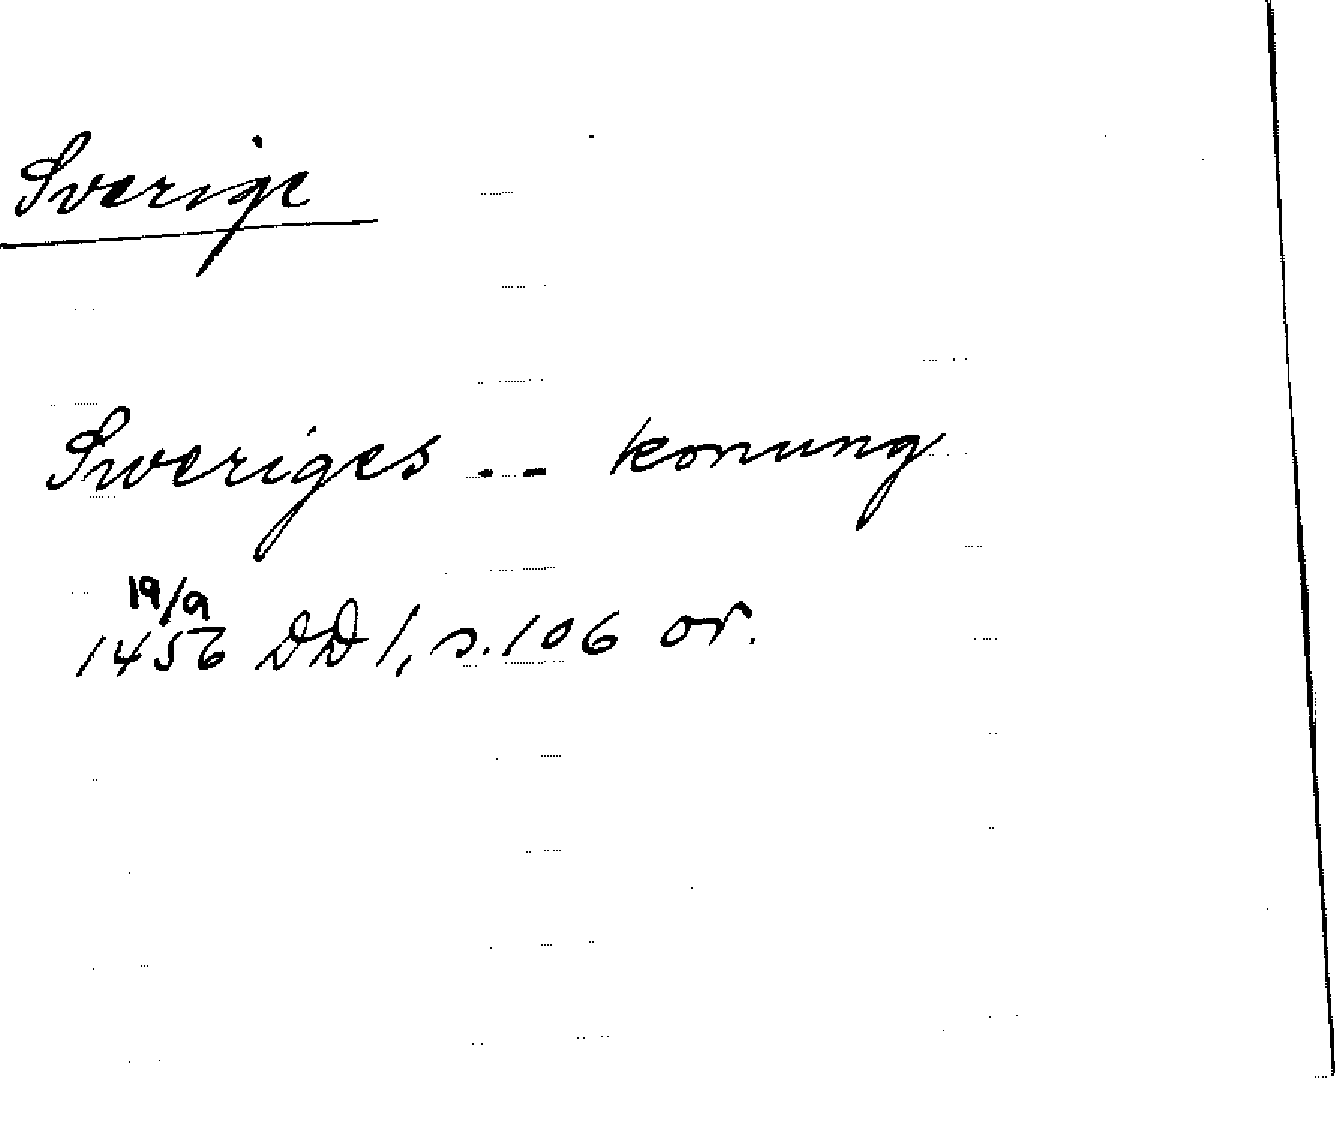 Sverige
Sweriges -- konung
19/9
1456 DD 1, s. 106 or.